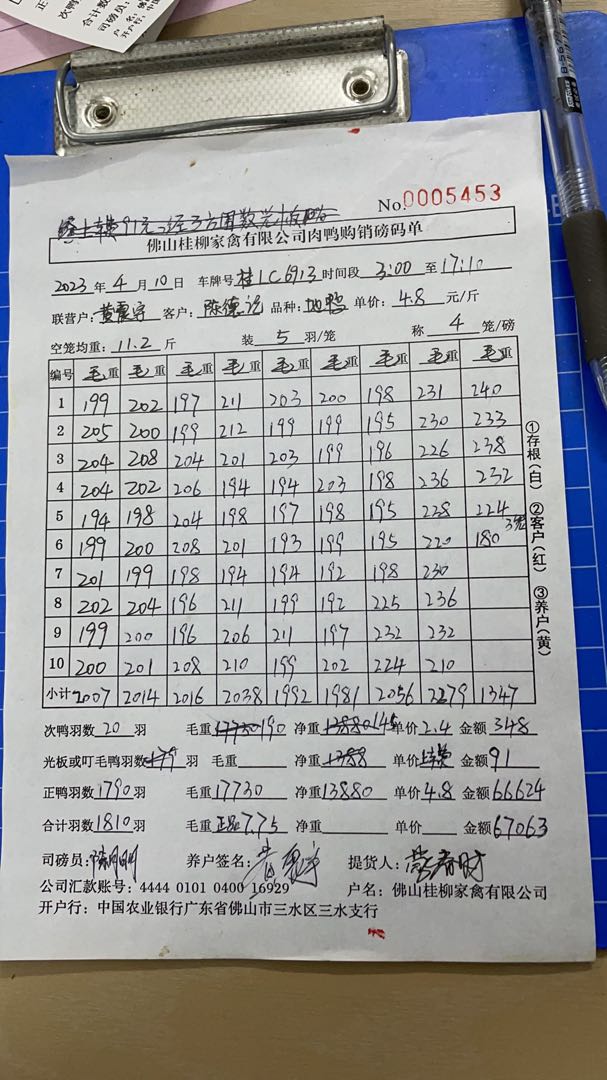 No. 0005453
佛山桂柳家禽有限公司肉鸭购销磅码单
2023 年 4 月 10 日 车牌号 桂LC6913 时间段 3:00 至 17:10
联营户: 黄震宇 客户: 陈德记 品种: 地鸭 单价: 4.8 元/斤
空笼均重: 11.2 斤 装 5 羽/笼 称 4 笼/磅
编号 毛重 毛重 毛重 毛重 毛重 毛重 毛重 毛重 毛重
1 199 202 197 211 203 200 198 231 240
2 205 200 199 212 199 199 195 230 233
3 204 208 204 201 203 199 196 226 238
4 204 202 206 194 194 203 198 236 232
5 194 198 204 198 197 198 195 228 224
6 199 200 208 201 193 199 195 220 180 3笼
7 201 199 198 194 194 192 198 230
8 202 204 196 211 199 192 225 236
9 199 200 196 206 211 197 232 232
10 200 201 208 210 199 202 224 210
小计 2007 2014 2016 2038 1992 1981 2056 2279 1347
次鸭羽数 20 羽 毛重 17730 190 净重 13880 145 单价 2.4 金额 348
光板或叮毛鸭羽数 179 羽 毛重 净重 1388 单价 金额 91
正鸭羽数 1790 羽 毛重 17730 净重 13880 单价 4.8 金额 66624
合计羽数 1810 羽 毛重 正品7.75 净重 单价 金额 67063
司磅员: 养户签名: 提货人:
公司汇款账号: 4444 0101 0400 16929 户名: 佛山桂柳家禽有限公司
开户行: 中国农业银行广东省佛山市三水区三水支行
①存根(白) ②客户(红) ③养户(黄)